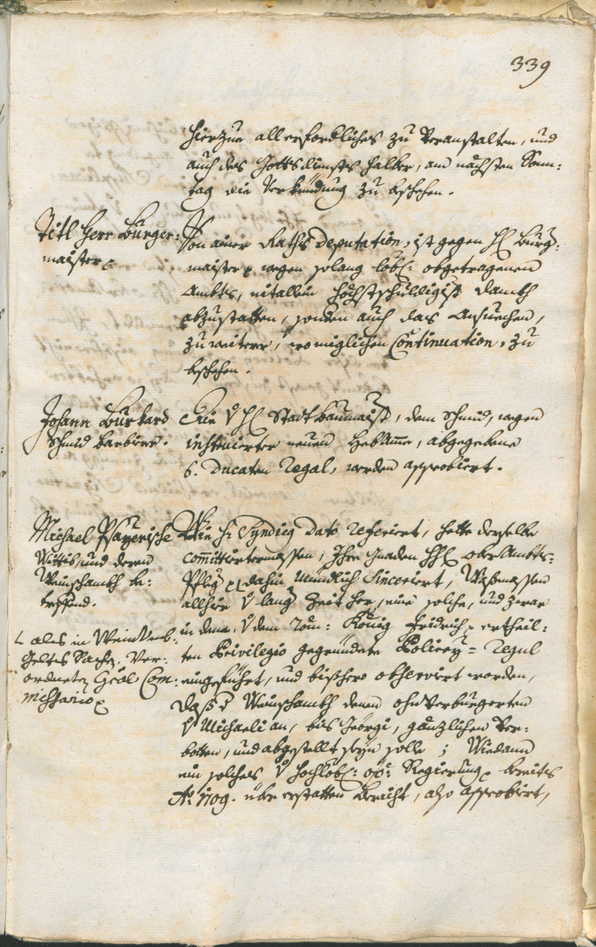 339
hierzue all erforderliches zu Veranstalten, und
auch des Gottsdiensts halber, am nächsten Sonn-
tag die Verkündung zu beschehen.
Titl Herr Burger-
maister
Von ainer Raths Deputation, ist gegen H: Burg:
maister wegen solang löbl: obgetragenen
Ambts, nit allein höchstschuldigist Danckh
abzustatten, sonder auch das Ansuechen,
zu weiterer, wo miglichen Continuation, zu
beschehen.
Johann Burkard
Schmid barbierer.
Die H: Stattbaumaister, dem Schmid, wegen
instruierter neuen Hebamme, abgegebene
6. Ducaten Regal, werden approbiert.
Michael Payerische
Wittib, und deren
Weinschanckh be-
treffend.
als in Weinumb-
geltes Sachen, Ver-
ordneten Gnäl Com-
missario
Wie H: Syndicus Dato Referiert, hette derselbe
committiertermassen, Ihro Gnaden H: oberAmbts-
Pfleger dahin mündlich sinceriert, Wasmassen
allhier V: lang Zeit her, eine solche, und zwar
in dem, V: dem Röm: König Fridrich ertheil-
ten Privilegio gegründete Policey-Regul
eingeführt, und bishero observirt worden,
Dass der Weinschanckh denen ohnverburgerten
V: Michaeli an, bis Georgi, gänzlichen Ver-
botten, und abgestellt seyn solle; Wie dann
ein solches V: hochlöbl: oö: Regierung bereits
Ao: 1709. über erstatten Bericht, also approbirt,